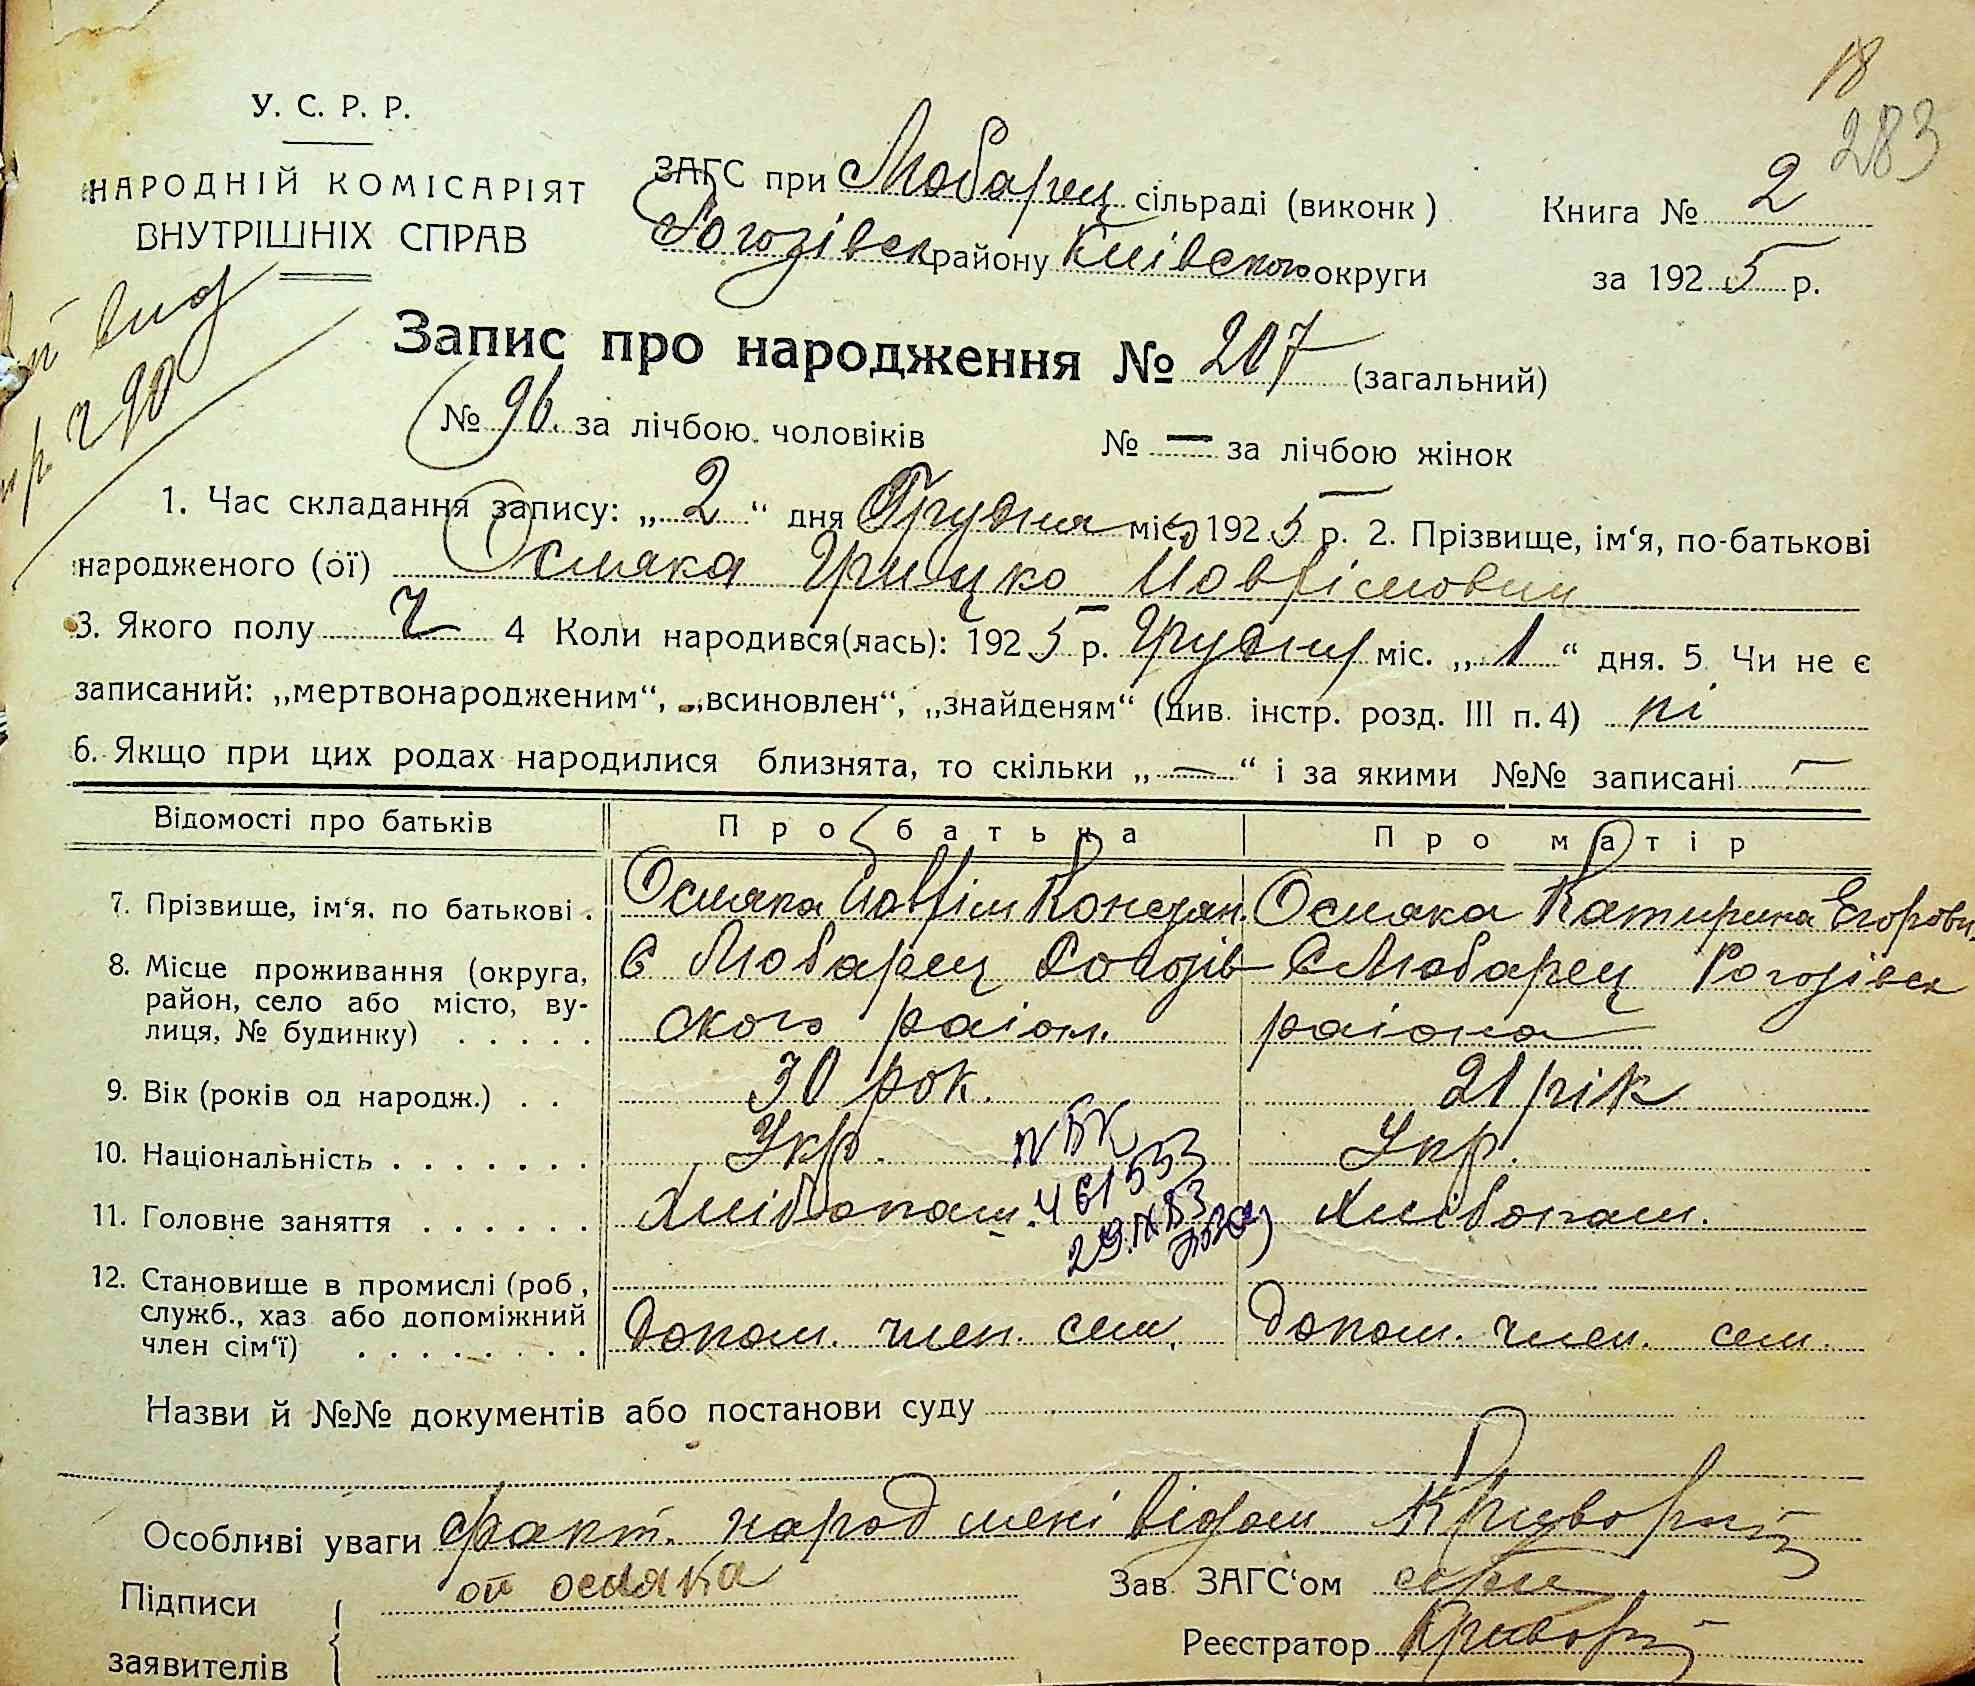 18
283
У. С. Р. Р.
НАРОДНІЙ КОМІСАРІЯТ
ВНУТРІШНІХ СПРАВ
ЗАГС при Любарец сільраді (виконк)
Рогозівск району Київского округи
Книга № 2
за 1925 р.
Запис про народження № 207 (загальний)
№ 96. за лічбою чоловіків № — за лічбою жінок
1. Час складання запису: „2“ дня Грудня міс. 1925 р. 2. Прізвище, ім‘я, по-батькові
народженого (ої) Осмяка Грицко Йовфімович
3. Якого полу ч 4 Коли народився(лась): 1925 р. Грудня міс. „1“ дня. 5 Чи не є
записаний: „мертвонародженим“, „всиновлен“, „знайденям“ (див. інстр. розд. III п. 4) ні
6. Якщо при цих родах народилися близнята, то скільки „—“ і за якими №№ записані —
Відомості про батьків Про батька Про матір
7. Прізвище, ім‘я, по батькові. Осмяка Йовфім Констан. Осмяка Катирина Егоровн.
8. Місце проживання (округа, С Любарец Рогозів С Любарец Рогозівск
район, село або місто, ву-
лиця, № будинку) ..... ского район. раіона
9. Вік (років од народж.) .. 30 рок. 21 рік
10. Національність ....... Укр. Укр.
11. Головне заняття ...... Хлібопаш. Хлібопаш.
461533
12. Становище в промислі (роб,
служб., хаз або допоміжний
член сім‘ї) ........ допом. член. сем. допом. член. сем.
Назви й №№ документів або постанови суду
Особливі уваги Факт. народ мені відом Криворот
Підписи
заявителів
осмяка
Зав. ЗАГС‘ом
Реєстратор